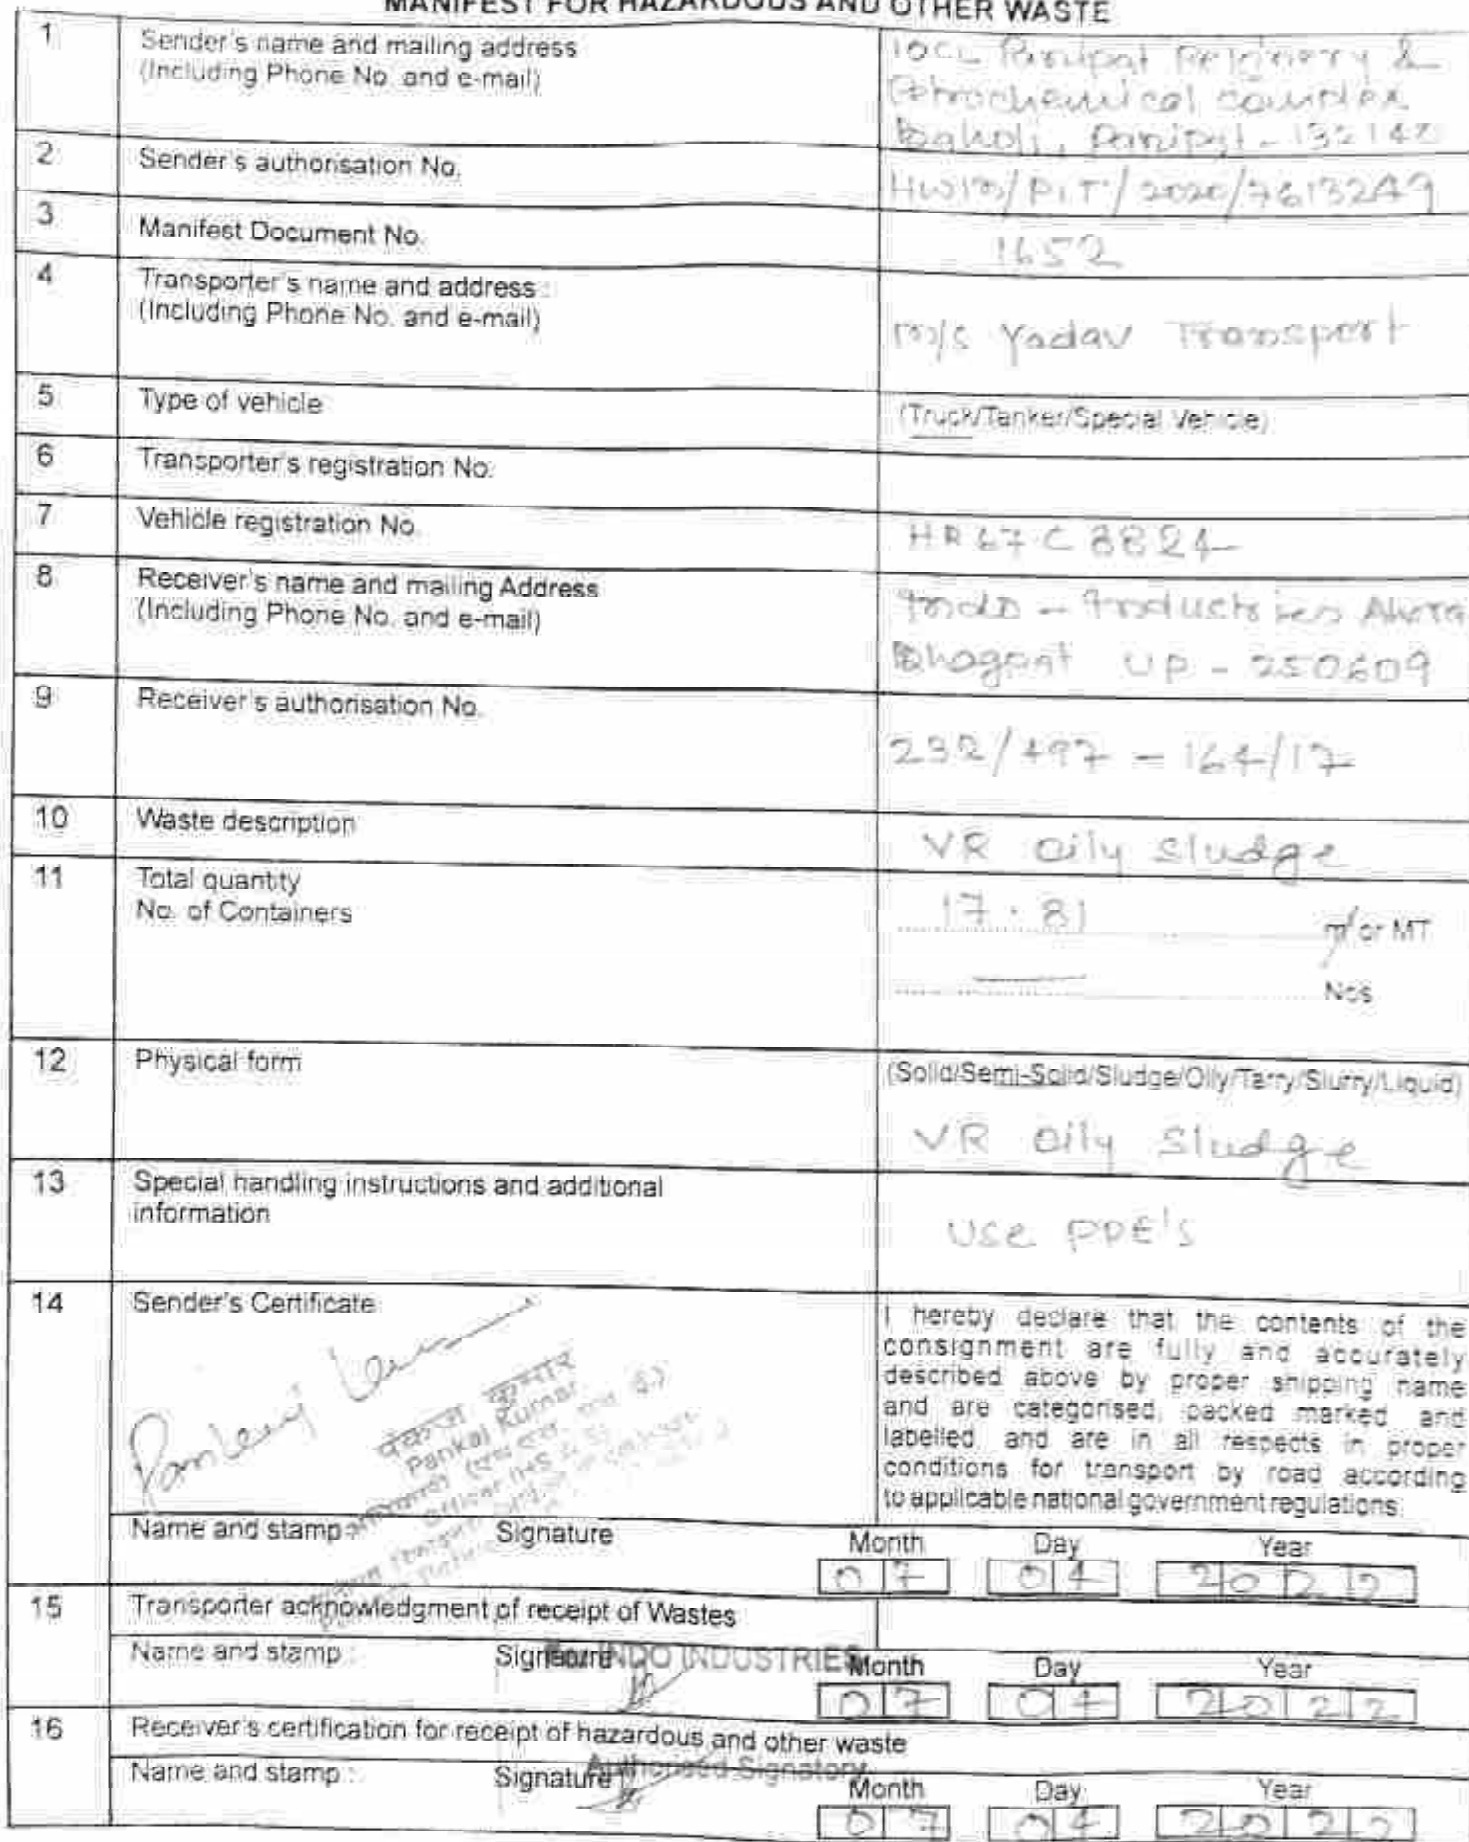 MANIFEST FOR HAZARDOUS AND OTHER WASTE
1 Sender's name and mailing address
(Including Phone No. and e-mail)
IOCL Panipat Refinery &
Petrochemical complex
Baholi, Panipat - 132140
2 Sender's authorisation No.
HWM/PIT/2020/7613249
3 Manifest Document No.
1652
4 Transporter's name and address :
(Including Phone No. and e-mail)
M/s Yadav Transport
5 Type of vehicle
(Truck/Tanker/Special Vehicle)
6 Transporter's registration No.
7 Vehicle registration No.
HR 67 C 8824
8 Receiver's name and mailing Address
(Including Phone No. and e-mail)
UP - 250609
9 Receiver's authorisation No.
232/497 - 164/17
10 Waste description
VR Oily Sludge
11 Total quantity
No. of Containers
17.81 m³ or MT
Nos
12 Physical form
(Solid/Semi-Solid/Sludge/Oily/Tarry/Slurry/Liquid)
VR Oily Sludge
13 Special handling instructions and additional
information
Use PPE's
14 Sender's Certificate
I hereby declare that the contents of the
consignment are fully and accurately
described above by proper shipping name
and are categorised, packed marked and
labelled, and are in all respects in proper
conditions for transport by road according
to applicable national government regulations.
Pankaj Kumar
पंकज कुमार
Pankaj Kumar
Name and stamp Signature Month Day Year
07 04 2022
15 Transporter acknowledgment of receipt of Wastes
Name and stamp : Signature Month Day Year
For INDO INDUSTRIES
07 04 2022
16 Receiver's certification for receipt of hazardous and other waste
Name and stamp : Signature Month Day Year
Authorised Signatory
07 04 2022